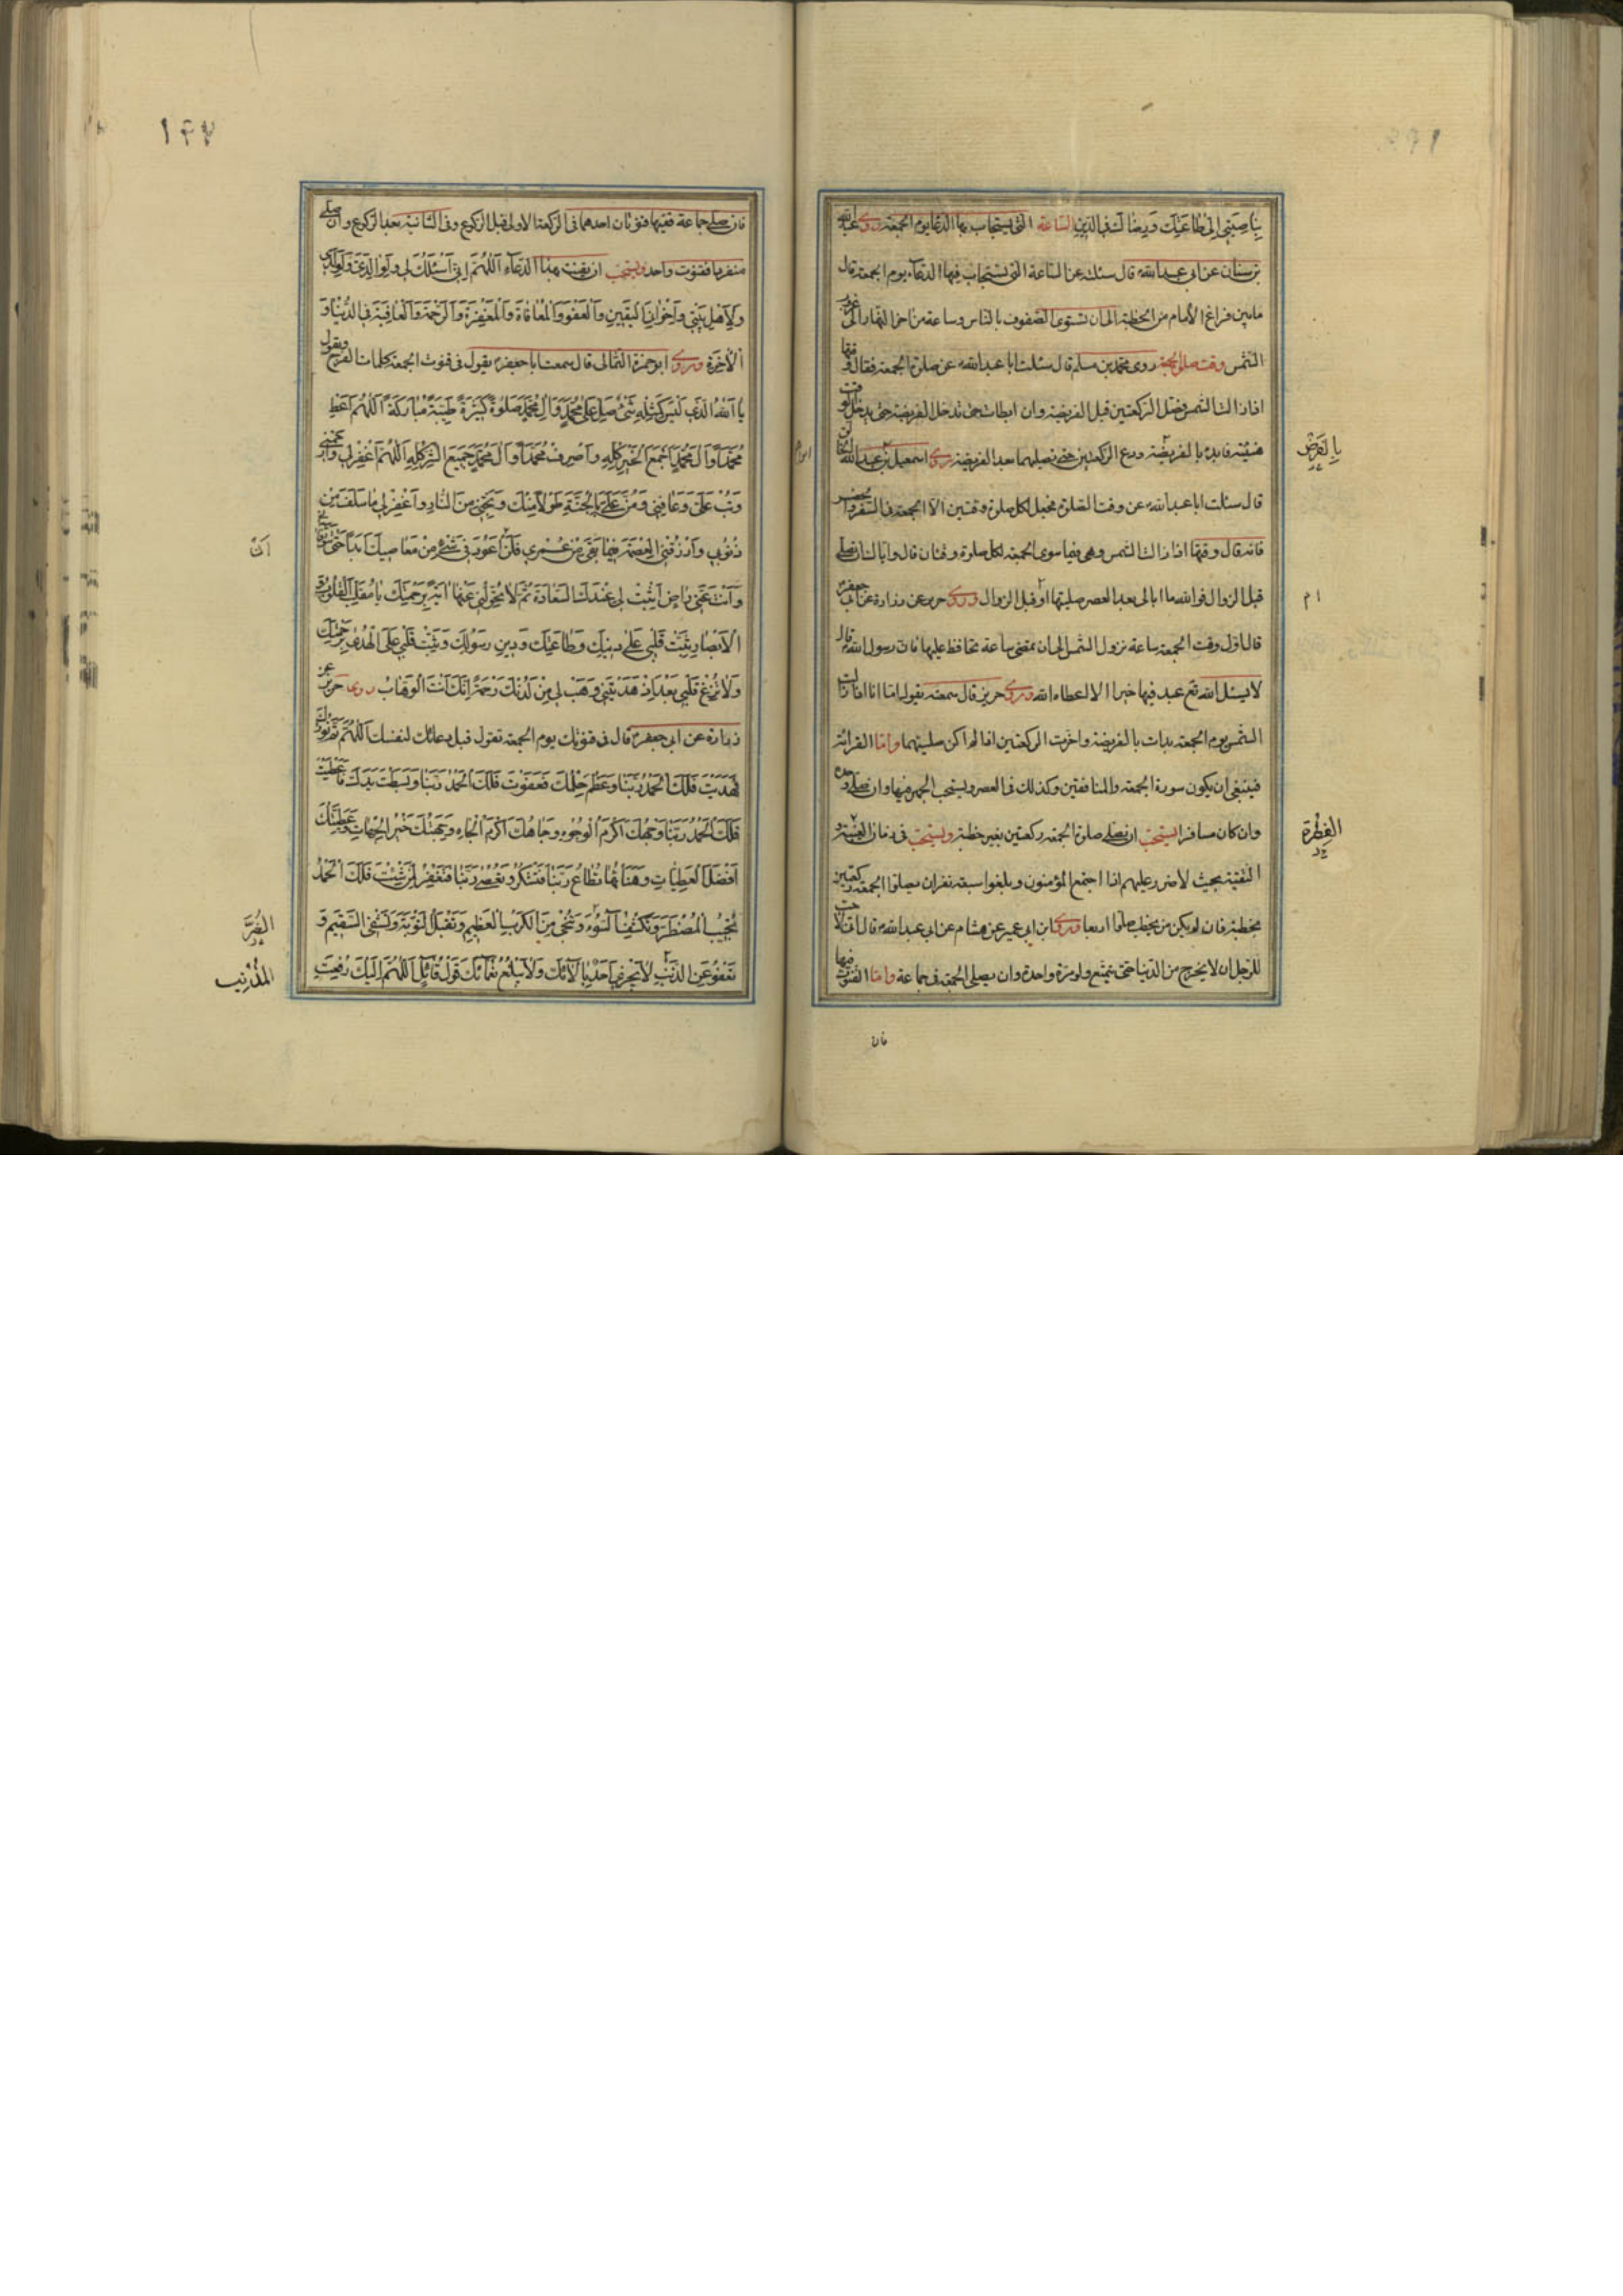 بناصيتي الى طاعتك ورضاك في الدين الساعة التي يستجاب بها الدعا يوم الجمعة روى عبد الله
بن سنان عن ابى عبد الله قال سئلته عن الساعة التي يستجاب فيها الدعاء يوم الجمعة قال
مابين فراغ الأمام من الخطبة الى ان تستوى الصفوف بالناس وساعة من اخر النهار الى غروب
الشمس وقت صلوة الجمعة روى محمد بن مسلم قال سئلت ابا عبد الله عن صلوة الجمعة فقال وقتها
اذا زالت الشمس فصل الركعتين قبل الفريضة وان ابطات حتى تدخل الفريضة حتى يدخل الوقت
هنيئة فابدء بالفريضة ودع الركعتين حتى تصليهما بعد الفريضة روى اسمعيل بن عبد الخالق
قال سئلت ابا عبد الله عن وقت الصلوة فجعل لكل صلوة وقتين الا الجمعة في السفر والحضر
فانه قال وقتها اذا زالت الشمس وهى فيما سوى الجمعة لكل صلوة وقتان قال واياك ان تصلي
قبل الزوال فوالله ما ابالى بعد العصر صليتها او قبل الزوال وروى حريز عن زرارة عن ابى جعفر
قال اول وقت الجمعة ساعة تزول الشمس الى ان تمضى ساعة تحافظ عليها فان رسول الله قال
لا يسئل الله تع عبد فيها خيرا الا اعطاه الله وروى حريز قال سمعته يقول اما انا اذا زالت
الشمس يوم الجمعة بدات بالفريضة واخرت الركعتين اذا لم اكن صليتهما واما القرائة
فينبغى ان يكون سورة الجمعة والمنافقين وكذلك فى العصر ويستحب الجهر فيها وان صلى وحده
وان كان مسافرا يستحب ان يصلى صلوة الجمعة ركعتين بغير خطبة ويستحب فى زمان الغيبة و
التقية بحيث لا ضرر عليهم اذا اجتمع المؤمنون وبلغوا سبعة نفر ان يصلوا الجمعة ركعتين
بخطبة فان لم يكن من يخطب صلوا اربعا وروى ابن ابى عمير عن هشام عن ابى عبد الله قال انى لاحب
للرجل ان لا يخرج من الدنيا حتى يتمتع ولو مرة واحدة وان يصلى الجمعة فى جماعة واما القنوت فيها
فان
١٤٧
فان صلى جماعة ففيها قنوتان احدهما فى الركعة الاولى قبل الركوع وفى الثانية بعد الركوع وان صلى
منفردا فقنوت واحد ويستحب ان يقنت بهذا الدعاء اللهم انى اسئلك لى ولوالدى ولولدى
ولاهل بيتى واخوانى اليقين والعفو والمعافاة والمغفرة والرحمة والعافية فى الدنيا و
الاخرة وروى ابو حمزة الثمالى قال سمعت ابا جعفر يقول فى قنوت الجمعة كلمات الفرج ويقول
يا الله الذى ليس كمثله شئ صل على محمد وال محمد صلوة كثيرة طيبة مباركة اللهم اعط
محمدا وال محمد جميع الخير كله واصرف عن محمد وال محمد جميع الشر كله اللهم اغفر لى وارحمنى
وتب على وعافنى ومن على بالجنة طولا منك ونجنى من النار واغفر لى ما سلف من
ذنوبى وارزقنى العصمة فيما بقى من عمرى فلن اعود فى شئ من معاصيك ابدا حتى تتوفانى
وانت عنى راض اثبت لى عندك السعادة ثم لا تحولنى عنها ابدا برحمتك يا مقلب القلوب و
الابصار ثبت قلبى على دينك وطاعتك ودين رسولك وثبت قلبى على الهدى برحمتك
ولا تزغ قلبى بعد اذ هديتنى وهب لى من لدنك رحمة انك انت الوهاب روى حريز عن
زرارة عن ابى جعفر قال فى قنوتك يوم الجمعة تقول قبل دعائك لنفسك اللهم تم نورك
فهديت فلك الحمد ربنا وعظم حلمك فعفوت فلك الحمد ربنا وبسطت يدك فاعطيت
فلك الحمد ربنا وجهك اكرم الوجوه وجاهك اكرم الجاه وجهتك خير الجهات وعطيتك
افضل العطيات وهناها تطاع ربنا فتشكر وتعصى ربنا فتغفر لمن شئت فلك الحمد
تجيب المضطر وتكشف السوء وتنجى من الكرب العظيم وتقبل التوبة وتشفى السقيم و
تعفو عن الذنب لا يجزى احد بالائك ولا يبلغ نعمائك قول قائل اللهم اليك رفعت
الضر
المذنب